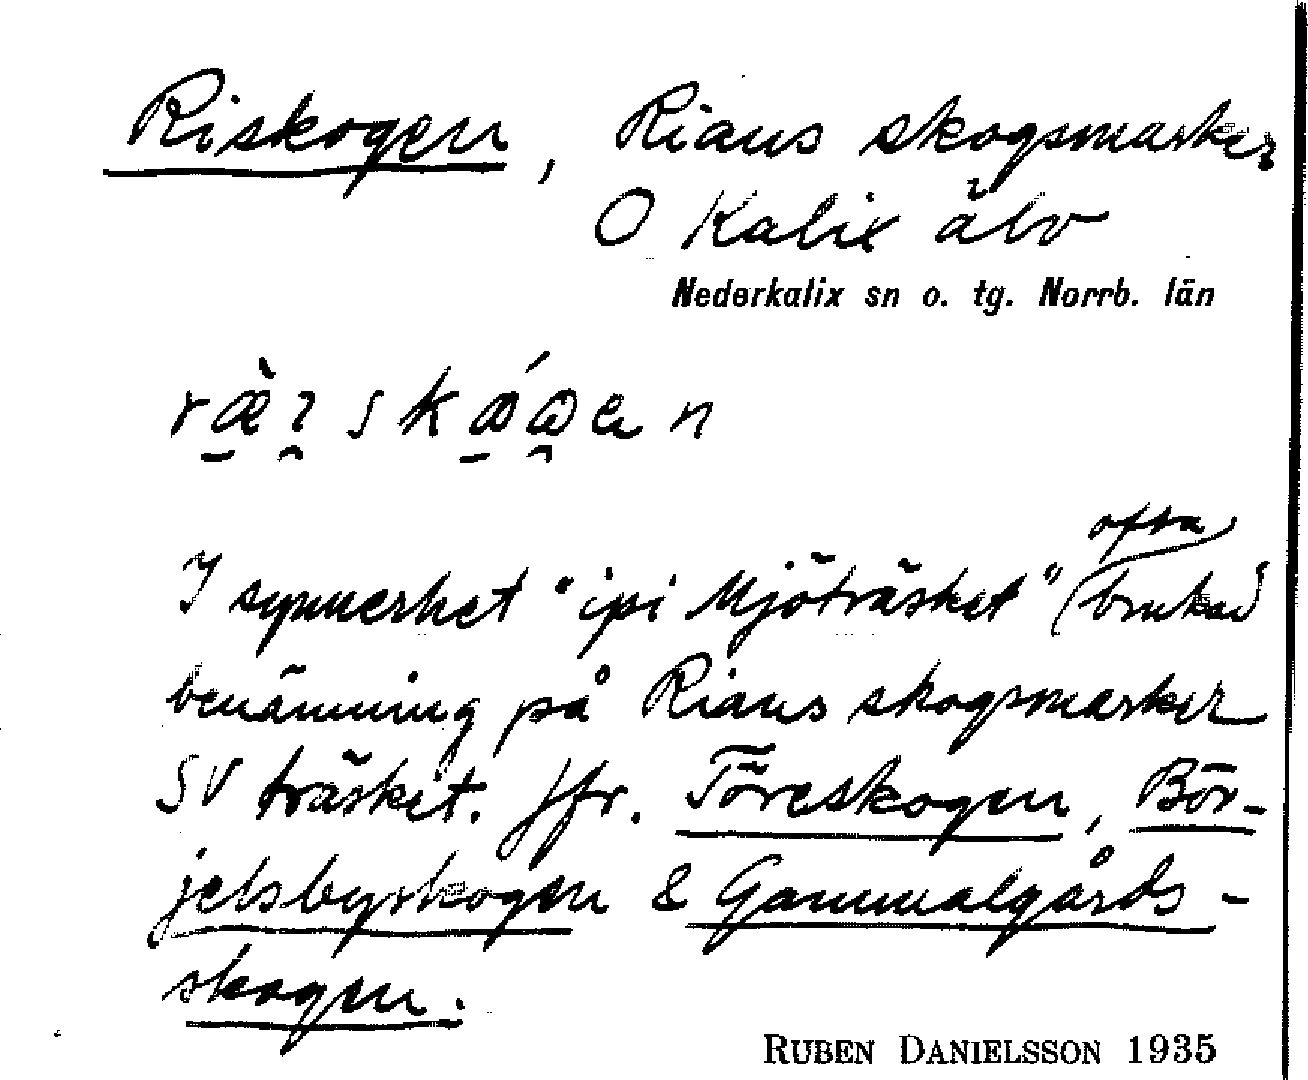 Riskogen, Rians skogsmarker
O Kalix älv
Nederkalix sn o. tg. Norrb. län
I synnerhet "ipi Mjöträsket" (ofta brukad
benämning på Rians skogsmarker
SV träsket. Jfr. Töreskogen, Bör-
jelsbyskogen & Gammalgårds-
skogen.
RUBEN DANIELSSON 1935